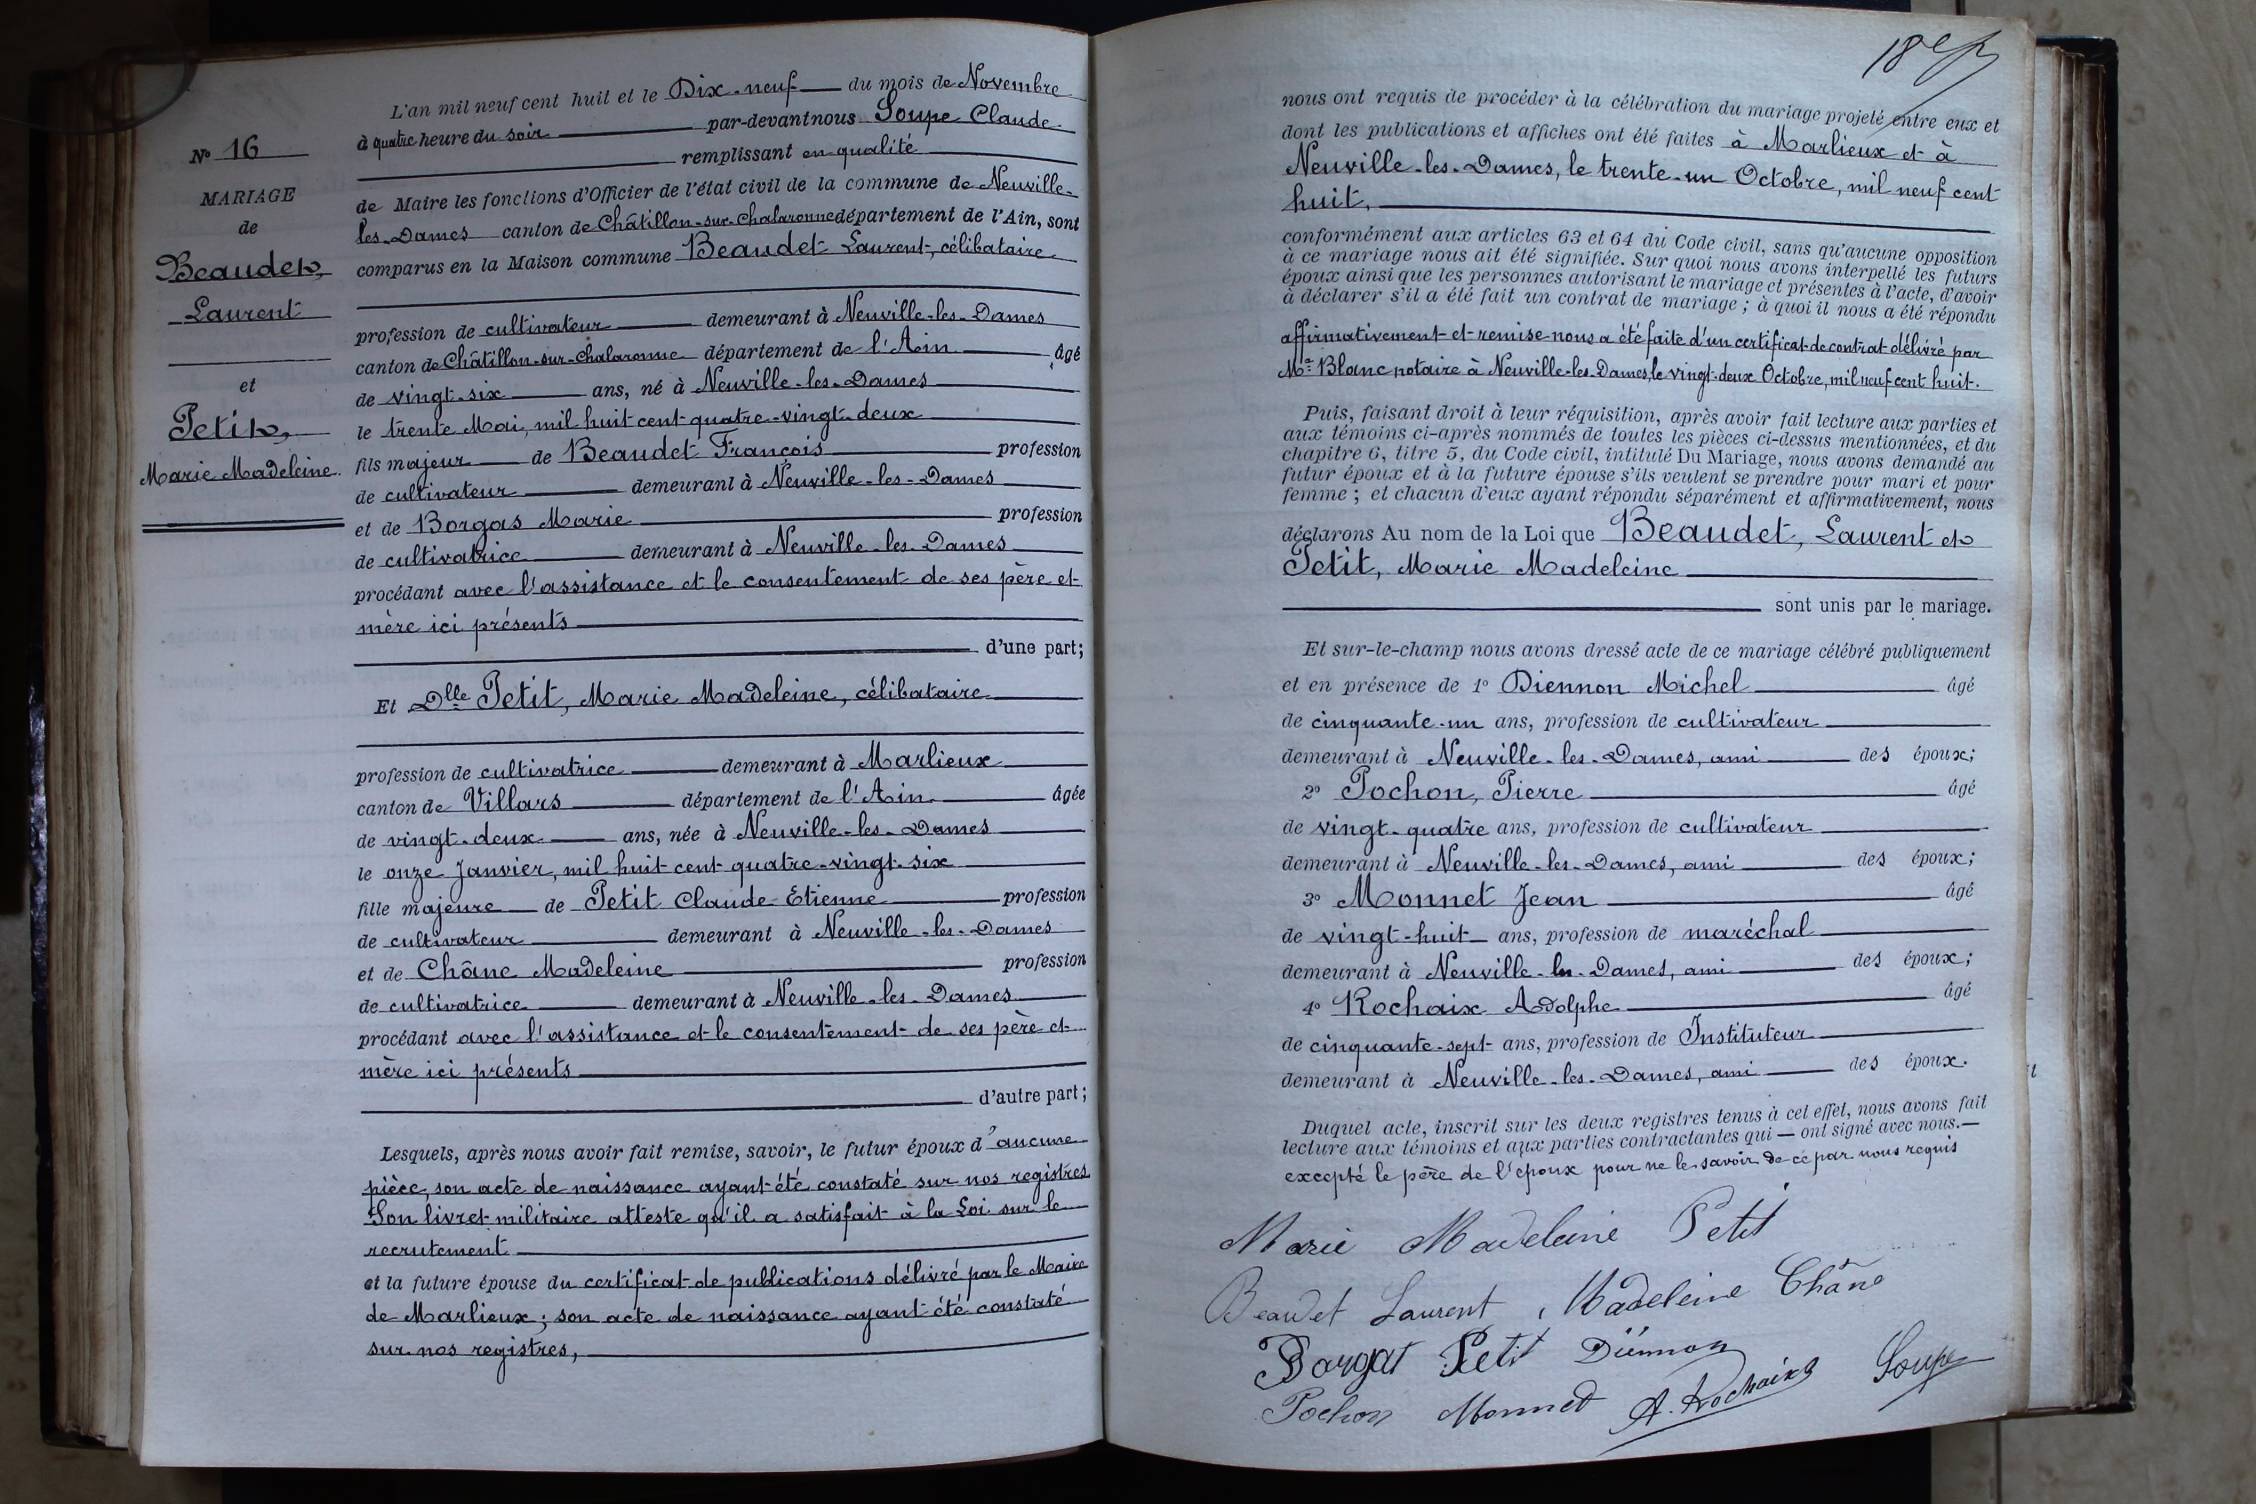 L'an mil neuf cent huit et le Dix-neuf du mois de Novembre
à quatre heure du soir par-devant nous Soupe Claude
remplissant en qualité
de Maire les fonctions d'Officier de l'état civil de la commune de Neuville-
les-Dames canton de Châtillon-sur-Chalaronne département de l'Ain, sont
comparus en la Maison commune Beaudet Laurent, célibataire
N° 16
MARIAGE
de
Beaudet,
Laurent
et
Petit,
Marie Madeleine
profession de cultivateur demeurant à Neuville-les-Dames
canton de Châtillon-sur-Chalaronne département de l'Ain âgé
de vingt-six ans, né à Neuville-les-Dames
le trente Mai, mil huit cent quatre-vingt-deux
fils majeur de Beaudet François profession
de cultivateur demeurant à Neuville-les-Dames
et de Borgas Marie profession
de cultivatrice demeurant à Neuville-les-Dames
procédant avec l'assistance et le consentement de ses père et
mère ici présents
d'une part;
Et Dlle Petit, Marie Madeleine, célibataire
profession de cultivatrice demeurant à Marlieux
canton de Villars département de l'Ain âgée
de vingt-deux ans, née à Neuville-les-Dames
le onze Janvier, mil huit cent quatre-vingt-six
fille majeure de Petit Claude Etienne profession
de cultivateur demeurant à Neuville-les-Dames
et de Châne Madeleine profession
de cultivatrice demeurant à Neuville-les-Dames
procédant avec l'assistance et le consentement de ses père et
mère ici présents
d'autre part;
Lesquels, après nous avoir fait remise, savoir, le futur époux d'aucune
pièce, son acte de naissance ayant été constaté sur nos registres
Son livret militaire atteste qu'il a satisfait à la Loi sur le
recrutement
et la future épouse du certificat de publications délivré par le Maire
de Marlieux; son acte de naissance ayant été constaté
sur nos registres,
nous ont requis de procéder à la célébration du mariage projeté entre eux et
dont les publications et affiches ont été faites à Marlieux et à
Neuville-les-Dames, le trente-un Octobre, mil neuf cent
huit,
conformément aux articles 63 et 64 du Code civil, sans qu'aucune opposition
à ce mariage nous ait été signifiée. Sur quoi nous avons interpellé les futurs
époux ainsi que les personnes autorisant le mariage et présentes à l'acte, d'avoir
à déclarer s'il a été fait un contrat de mariage; à quoi il nous a été répondu
affirmativement et remise nous a été faite d'un certificat de contrat délivré par
Me Blanc notaire à Neuville-les-Dames, le vingt-deux Octobre, mil neuf cent huit.
Puis, faisant droit à leur réquisition, après avoir fait lecture aux parties et
aux témoins ci-après nommés de toutes les pièces ci-dessus mentionnées, et du
chapitre 6, titre 5, du Code civil, intitulé Du Mariage, nous avons demandé au
futur époux et à la future épouse s'ils veulent se prendre pour mari et pour
femme; et chacun d'eux ayant répondu séparément et affirmativement, nous
déclarons Au nom de la Loi que Beaudet, Laurent et
Petit, Marie Madeleine
sont unis par le mariage.
Et sur-le-champ nous avons dressé acte de ce mariage célébré publiquement
et en présence de 1° Diennon Michel âgé
de cinquante-un ans, profession de cultivateur
demeurant à Neuville-les-Dames, ami des époux;
2° Pochon, Pierre âgé
de vingt-quatre ans, profession de cultivateur
demeurant à Neuville-les-Dames, ami des époux;
3° Monnet Jean âgé
de vingt-huit ans, profession de maréchal
demeurant à Neuville-les-Dames, ami des époux;
4° Rochaix Adolphe âgé
de cinquante-sept ans, profession de Instituteur
demeurant à Neuville-les-Dames, ami des époux.
Duquel acte, inscrit sur les deux registres tenus à cet effet, nous avons fait
lecture aux témoins et aux parties contractantes qui — ont signé avec nous.—
excepté le père de l'époux pour ne le savoir de ce par nous requis
Marie Madeleine Petit
Beaudet Laurent, Madeleine Châne
Borgat Petit Diennon
Pochon Monnet A. Rochaix Soupe